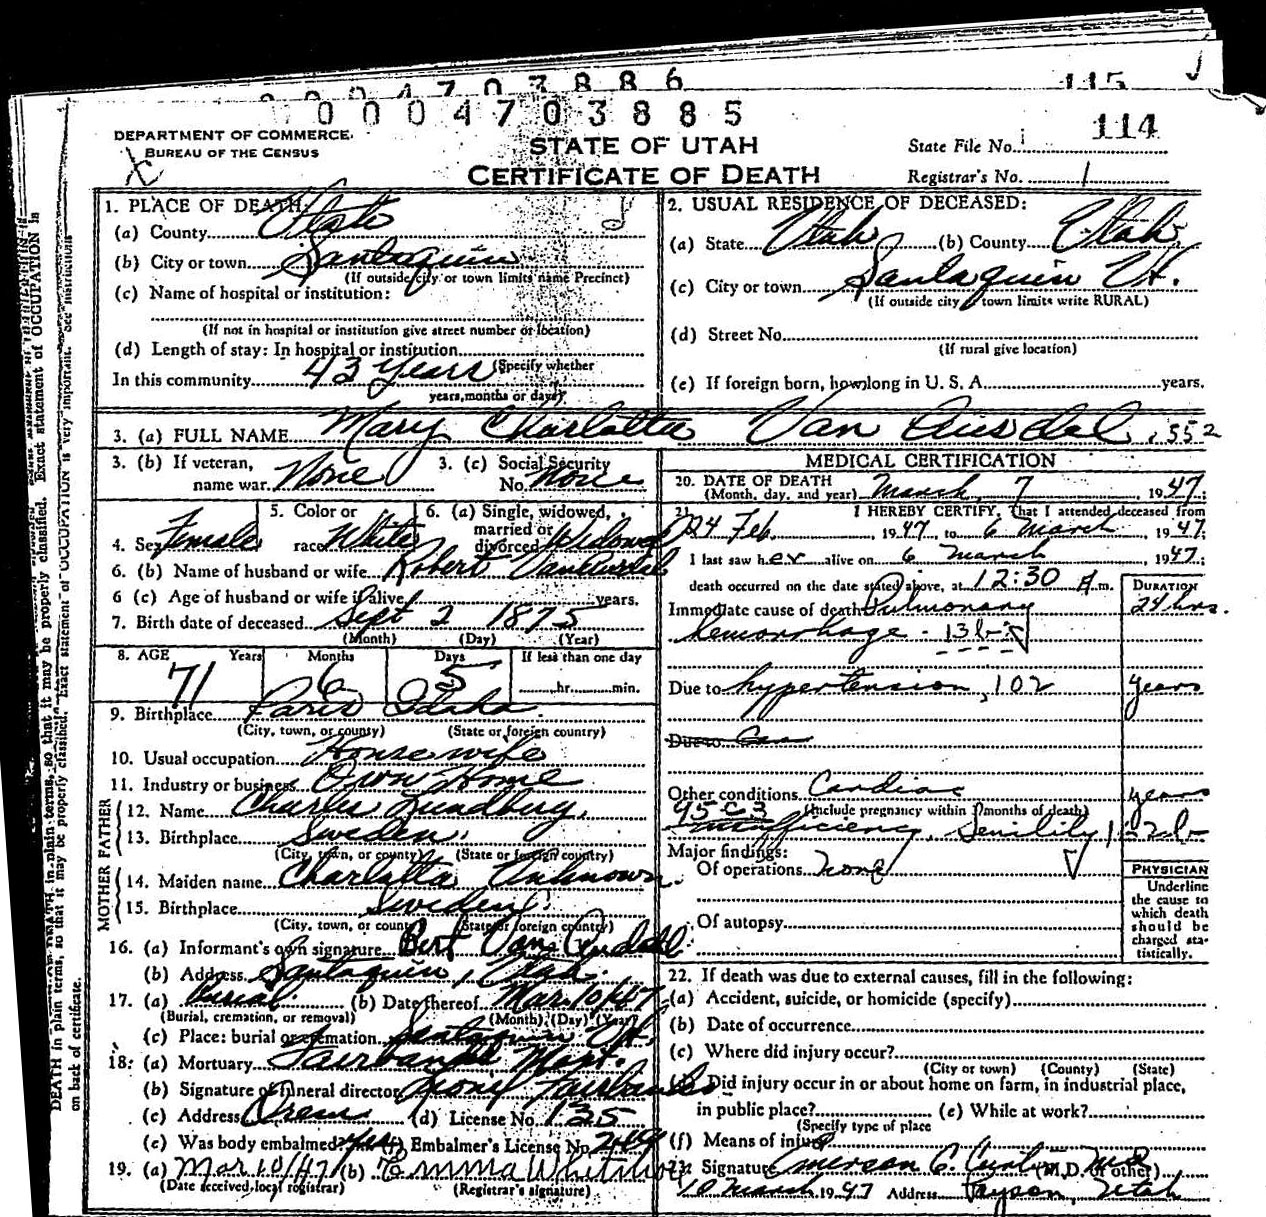 0004703886
115
0004703885
114
DEPARTMENT OF COMMERCE
BUREAU OF THE CENSUS
STATE OF UTAH
CERTIFICATE OF DEATH
State File No.
Registrar's No. 1
1. PLACE OF DEATH:
(a) County Utah
(b) City or town Santaquin
(If outside city or town limits name Precinct)
(c) Name of hospital or institution:
(If not in hospital or institution give street number or location)
(d) Length of stay: In hospital or institution
(Specify whether
In this community 43 Years
years, months or days)
2. USUAL RESIDENCE OF DECEASED:
(a) State Utah (b) County Utah
(c) City or town Santaquin Ut.
(If outside city town limits write RURAL)
(d) Street No.
(If rural give location)
(e) If foreign born, how long in U. S. A. years.
3. (a) FULL NAME Mary Charlotta Van Ausdal 552
3. (b) If veteran,
name war. None
3. (c) Social Security
No. None
4. Sex Female
5. Color or
race White
6. (a) Single, widowed,
married or
divorced Widowed
6. (b) Name of husband or wife Robert VanAusdal
6 (c) Age of husband or wife if alive years.
7. Birth date of deceased Sept 2 1875
(Month) (Day) (Year)
8. AGE Years Months Days If less than one day
71 6 5 hr. min.
9. Birthplace Paris Idaho
(City, town, or county) (State or foreign country)
10. Usual occupation Housewife
11. Industry or business Own Home
FATHER
12. Name Charles Lundberg
13. Birthplace Sweden
(City, town, or county) (State or foreign country)
MOTHER
14. Maiden name Charlotta Unknown
15. Birthplace Sweden
(City, town, or county) (State or foreign country)
16. (a) Informant's own signature Bert Van Ausdal
(b) Address Santaquin, Utah.
17. (a) Burial (b) Date thereof Mar. 10/47
(Burial, cremation, or removal) (Month) (Day) (Year)
(c) Place: burial or cremation Santaquin Ut.
18: (a) Mortuary Fairbanks Mort.
(b) Signature of funeral director Fairbanks
(c) Address Orem (d) License No. 135
(e) Was body embalmed yes (f) Embalmer's License No.
19. (a) Mar 10/47 (b) Emma
(Date received local registrar) (Registrar's signature)
MEDICAL CERTIFICATION
20. DATE OF DEATH
(Month, day, and year) March 7, 1947;
21. I HEREBY CERTIFY, That I attended deceased from
24 Feb., 1947, to 6 March, 1947;
I last saw her alive on 6 March 1947;
death occurred on the date stated above, at 12:30 A.m.
DURATION
Immediate cause of death Pulmonary 24 hrs.
hemorrhage
Due to hypertension, 102 years
Due to
Other conditions Cardiac years
(Include pregnancy within 3 months of death)
95 c 3
insufficiency, Senility
Major findings:
Of operations none
Of autopsy
PHYSICIAN
Underline
the cause to
which death
should be
charged sta-
tistically.
22. If death was due to external causes, fill in the following:
(a) Accident, suicide, or homicide (specify)
(b) Date of occurrence
(c) Where did injury occur?
(City or town) (County) (State)
Did injury occur in or about home on farm, in industrial place,
in public place? (e) While at work?
(Specify type of place
(f) Means of injury
Signature Emerson C. (M.D. or other)
10 March 1947 Address Payson, Utah
on back of certificate.